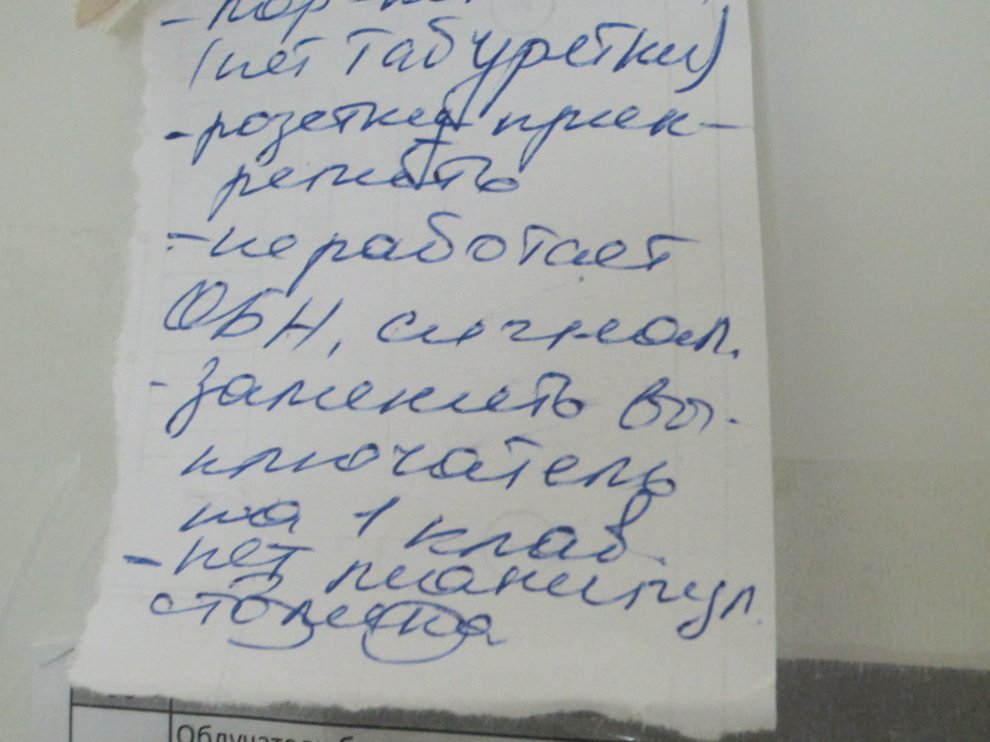 (нет табуретки)
- розетку прик-
репить
- не работает
ОБН, сигнал.
- заменить вы-
ключатель
на 1 клав.
- нет манипул.
столика